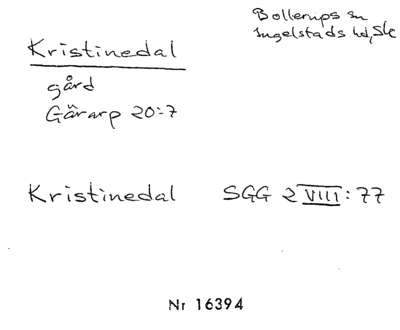 Kristinedal
Bollerups sn
Ingelstads hd, Sk
gård
Gårarp 20:7
Kristinedal SGG 2 VIII: 77
Nr 16394